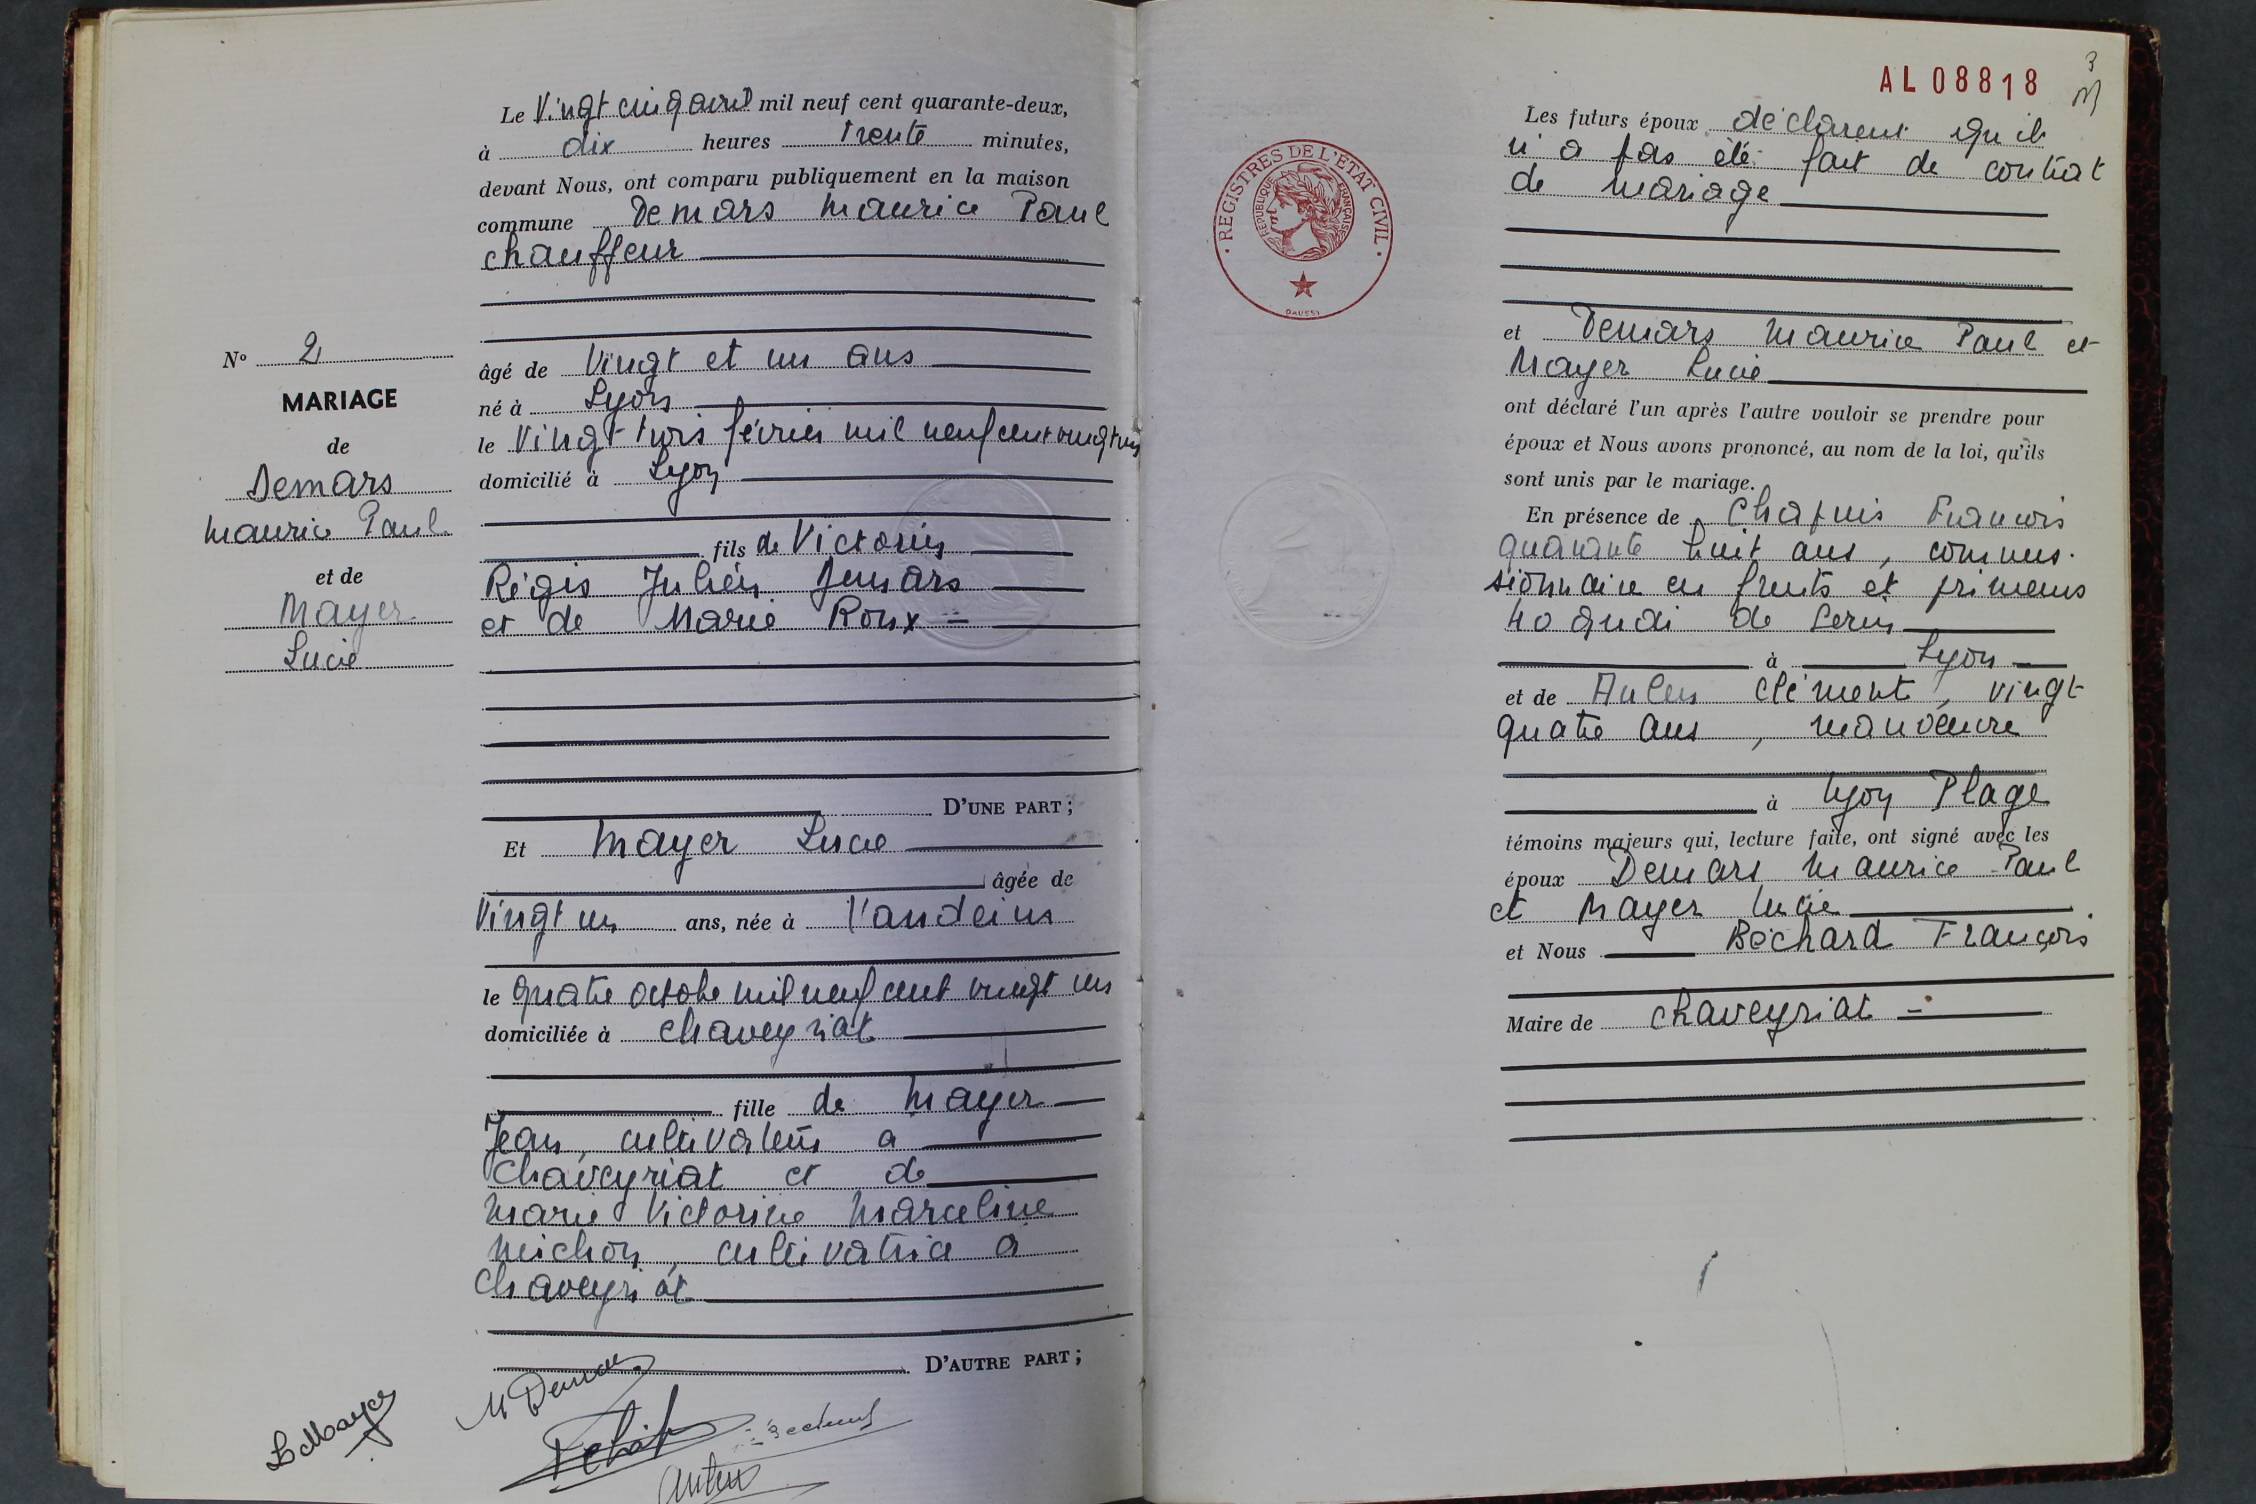 Le Vingt cinq avril mil neuf cent quarante-deux,
à dix heures trente minutes,
devant Nous, ont comparu publiquement en la maison
commune Demars Maurice Paul
chauffeur
N° 2
MARIAGE
de
Demars
Maurice Paul
et de
Mayer
Lucie
âgé de Vingt et un ans
né à Lyon
le Vingt trois février mil neuf cent vingt un
domicilié à Lyon
fils de Victorin
Régis Julien Demars
et de Marie Roux =
D'UNE PART ;
Et Mayer Lucie
âgée de
Vingt un ans, née à Vandeins
le quatre octobre mil neuf cent vingt un
domiciliée à Chaveyriat
fille de Mayer
Jean, cultivateur a
Chaveyriat et de
Marie Victorine Marceline
Michon, cultivatrice a
Chaveyriat
D'AUTRE PART ;
L Mayer
M Demars
AL 08818
3
REGISTRES DE L'ETAT CIVIL
REPUBLIQUE FRANÇAISE
DAUSSY
Les futurs époux déclarent qu'il
n'a pas été fait de contrat
de mariage
et Demars Maurice Paul et
Mayer Lucie
ont déclaré l'un après l'autre vouloir se prendre pour
époux et Nous avons prononcé, au nom de la loi, qu'ils
sont unis par le mariage.
En présence de Chapuis François
quarante huit ans, commis-
sionnaire en fruits et primeurs
40 quai de Serin
à Lyon
et de Clément, vingt
quatre ans, manoeuvre
à Lyon Plage
témoins majeurs qui, lecture faite, ont signé avec les
époux Demars Maurice Paul
et Mayer Lucie
et Nous Béchard François
Maire de Chaveyriat =